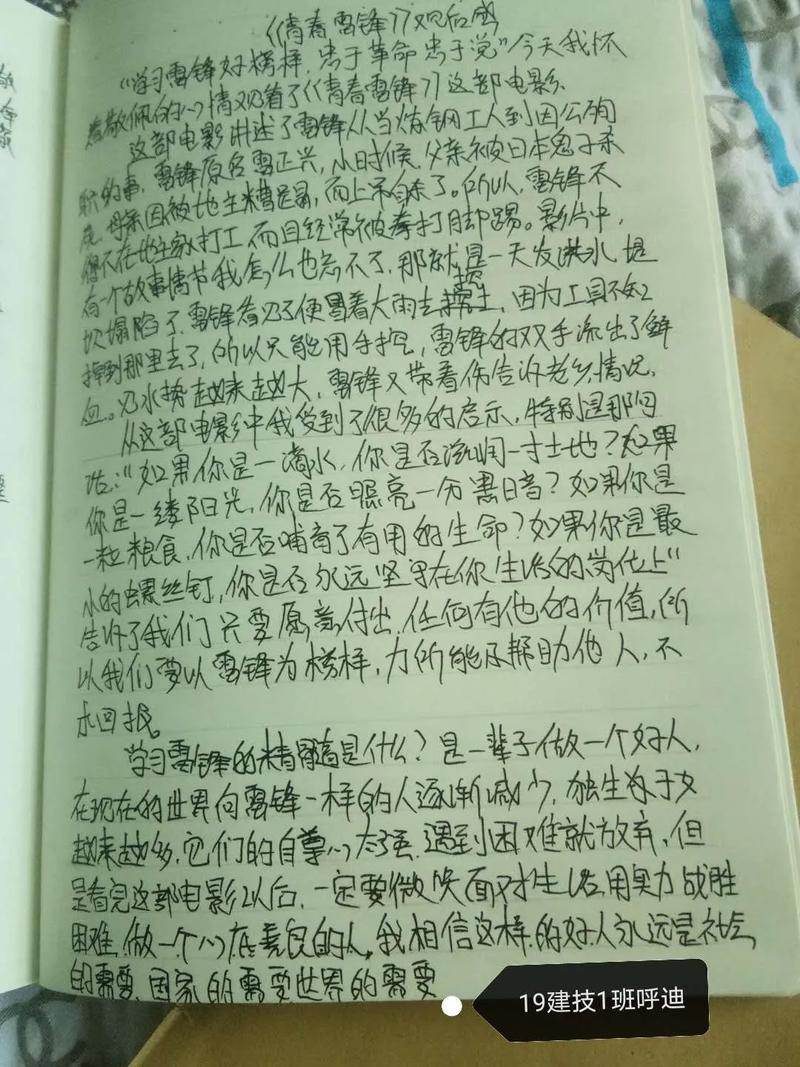 《青春雷锋》观后感
"学习雷锋好榜样,忠于革命忠于党"今天我怀
着敬佩的心情观看了《青春雷锋》这部电影.
这部电影讲述了雷锋从当炼钢工人到因公殉
职的事,雷锋原名雷正兴,小时候,父亲被日本鬼子杀
死,母亲因被地主糟蹋,而上吊自杀了。所以,雷锋不
得不在地主家打工,而且经常被拳打脚踢。影片中,
有一个故事情节我怎么也忘不了,那就是一天发洪水,堤
坝塌陷了,雷锋看见了便冒着大雨去挖土,因为工具不知
掉到那里去了,所以只能用手挖,雷锋的双手流出了鲜
血。见水势越来越大,雷锋又带着伤告诉老乡情况.
从这部电影中我受到了很多的启示,特别是那句
话:"如果你是一滴水,你是否滋润一寸土地?如果
你是一缕阳光,你是否照亮一分黑暗?如果你是
一粒粮食,你是否哺育了有用的生命?如果你是最
小的螺丝钉,你是否永远坚守在你生活的岗位上"
告诉了我们只要愿意付出,任何有他的价值,所
以我们要以雷锋为榜样,力所能及帮助他人,不
求回报。
学习雷锋的精髓是什么?是一辈子做一个好人,
在现在的世界向雷锋一样的人逐渐减少,独生子女
越来越多,它们的自尊心太强,遇到困难就放弃,但
是看完这部电影以后,一定要微笑面对生活,用努力战胜
困难,做一个心底素包的人,我相信这样的好人永远是社会
的需要,国家的需要世界的需要
19建技1班呼迪